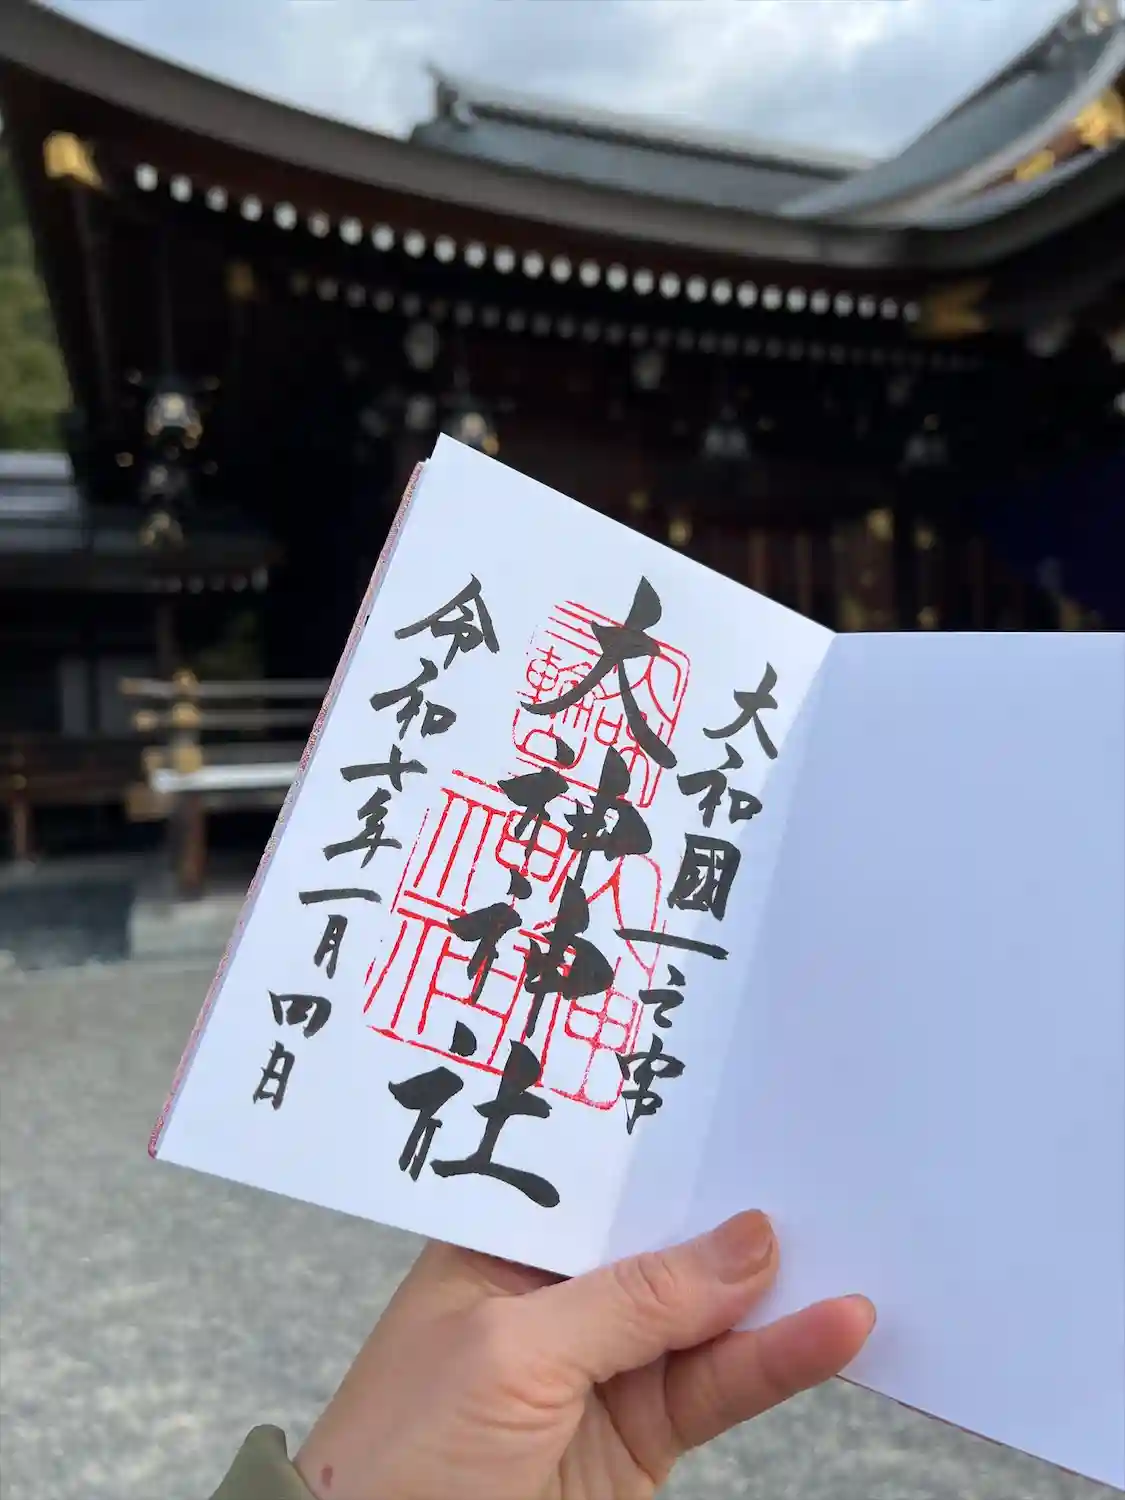 大和國一之宮
大神神社
令和七年一月四日
大神神社